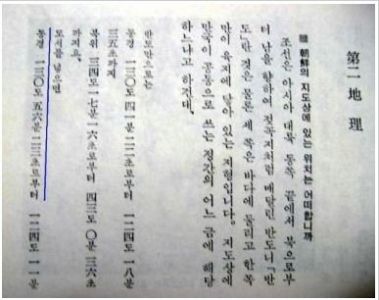 第二 地理
朝鮮의 지도상에 있는 위치는 어떠합니까
조선은 아시아 대륙 동쪽 끝에서 북으로부
터 남을 향하여 처럼 매달린 반도니 「반
도」란 것은 세 쪽은 바다에 둘리고 한 쪽
만이 육지에 닿아 있는 지형입니다. 지도상에
만국이 공통으로 쓰는 어느 금에 해당
하느냐고 하건대,
반도만으로는
동경 一三○도 四一분 二二초로부터 一二四도 一八분
三五초까지
북위 三四도 一七분 一六초로부터 四三도 ○분 三六초
까지요,
도서를 넣으면
동경 一三○도 五六분 二三초로부터 一二四도 一一분